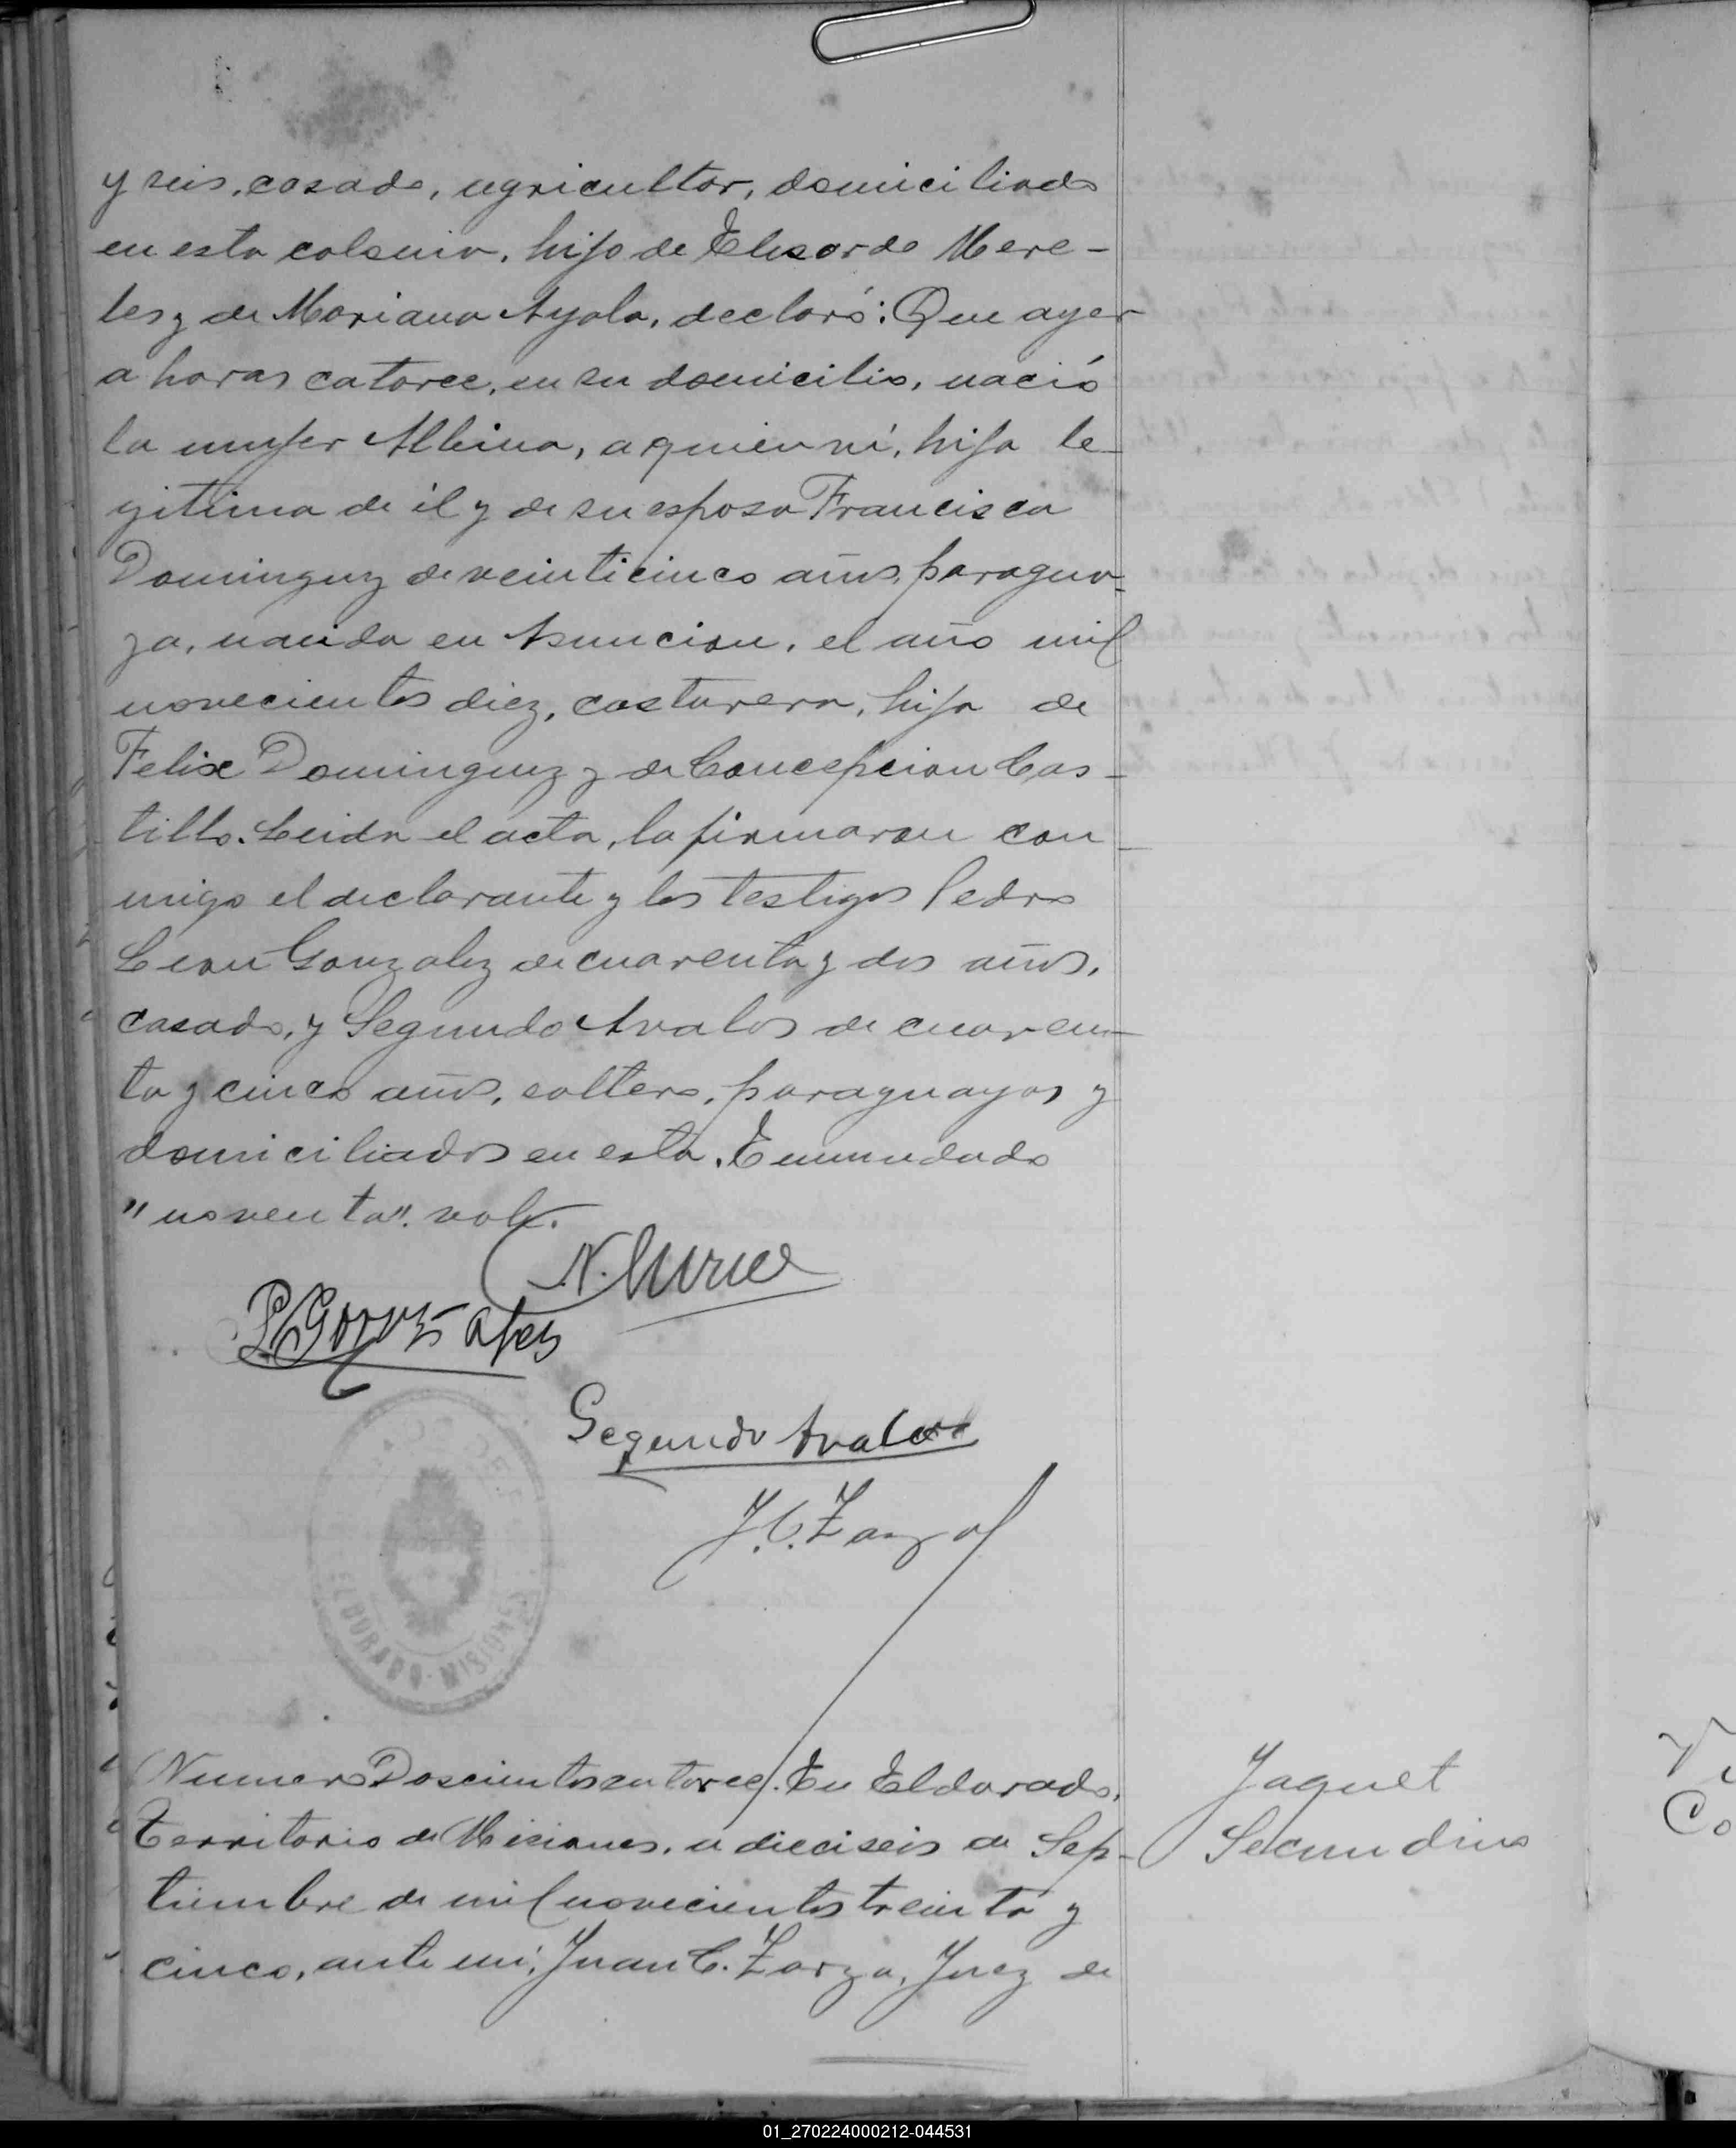 y seis, casado, agricultor, domiciliado
en esta colonia, hijo de Elisardo Mere-
les y de Mariana Ayala, declaró: Que ayer
a horas catorce, en su domicilio, nació
la mujer Albina, a quien ví, hija le-
gitima de él y de su esposa Francisca
Dominguez de veinticinco años, paragua-
ya, nacida en Asuncion, el año mil
novecientos diez, costurera, hija de
Felix Dominguez y de Concepcion Cas-
tillo. Leida el acta, la firmaron con-
migo el declarante y los testigos Pedro
Leon Gonzalez de cuarenta y dos años,
casado, y Segundo Avalos de cuaren-
ta y cinco años, soltero, paraguayos y
domiciliados en esta. Enmendado
"noventa". vale.
P L Gonzalez
Segundo Avalos
J. C. Zarza
ELDORADO - MISIONES
Numero Doscientos catorce. En Eldorado,
Territorio de Misiones, a dieciseis de Sep-
tiembre de mil novecientos treinta y
cinco, ante mi, Juan C. Zarza, Juez de
Jaquet
Secundino
01_270224000212-044531